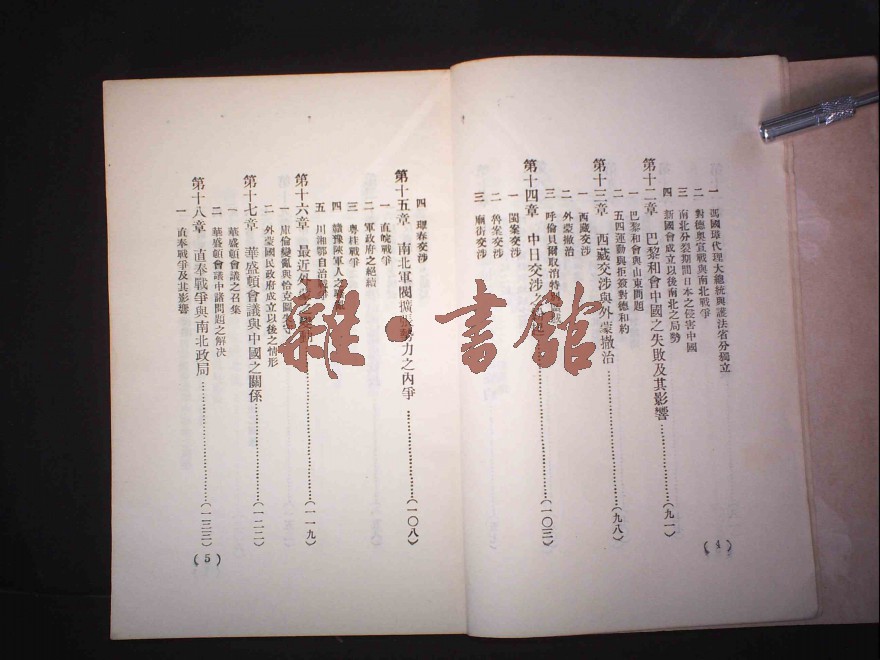 一 馮國璋代理大總統與護法省分獨立
二 對德奧宣戰與南北戰爭
三 南北分裂期間日本之侵害中國
四 新國會成立以後南北之局勢
第十二章 巴黎和會中國之失敗及其影響……(九一)
一 巴黎和會與山東問題
二 五四運動與拒簽對德和約
第十三章 西藏交涉與外蒙撤治……(九八)
一 西藏交涉
二 外蒙撤治
三 呼倫貝爾取消特別
第十四章 中日交涉之……(一〇三)
一 閩案交涉
二 魯案交涉
三 廟街交涉
(4)
四 琿春交涉
第十五章 南北軍閥擴張勢力之內爭……(一〇八)
一 直皖戰爭
二 軍政府之絕續
三 粵桂戰爭
四 贛豫陝軍人之
五 川湘鄂自治戰爭
第十六章 最近外……(一一九)
一 庫倫變亂與恰克圖
二 外蒙國民政府成立以後之情形
第十七章 華盛頓會議與中國之關係……(一二二)
一 華盛頓會議之召集
二 華盛頓會議中諸問題之解決
第十八章 直奉戰爭與南北政局……(一三三)
一 直奉戰爭及其影響
(5)
雜·書館